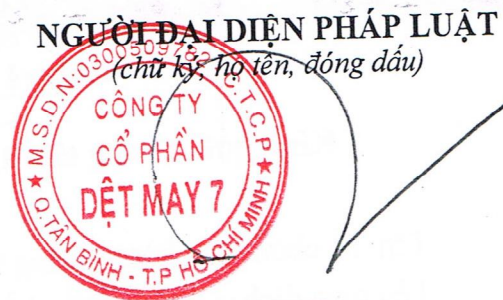 NGƯỜI ĐẠI DIỆN PHÁP LUẬT
(chữ ký, họ tên, đóng dấu)
M.S.D.N:0300509782-C.T.C.P
CÔNG TY
CỔ PHẦN
DỆT MAY 7
Q.TÂN BÌNH - T.P HỒ CHÍ MINH